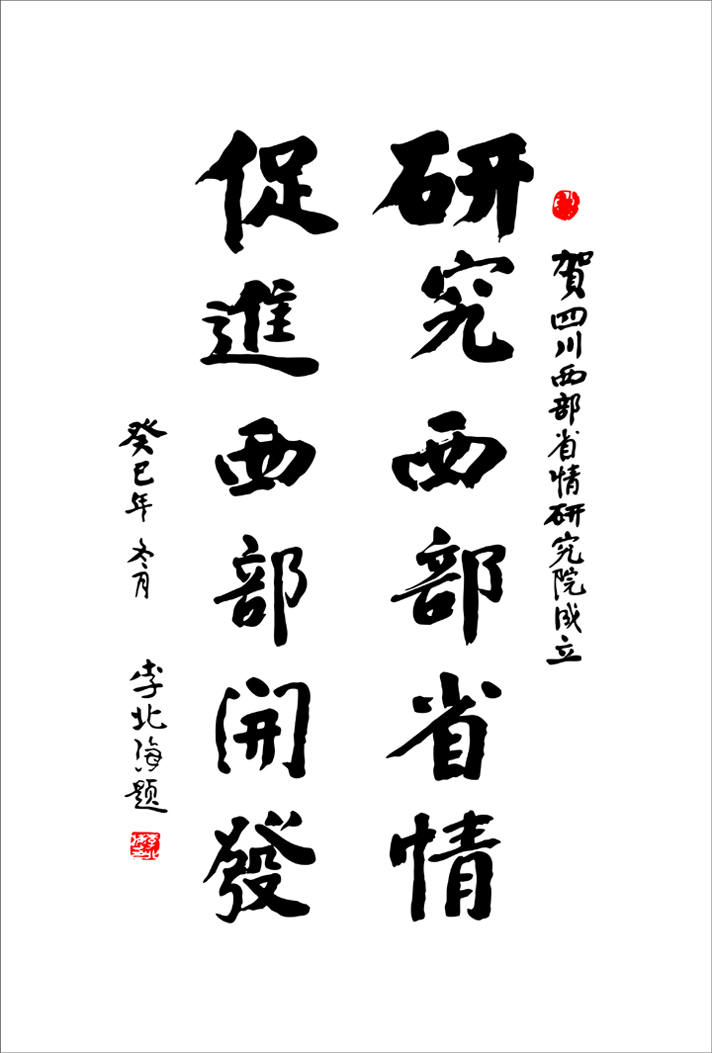 賀四川西部省情研究院成立
研究西部省情
促進西部開發
癸巳年 冬月
李北海题